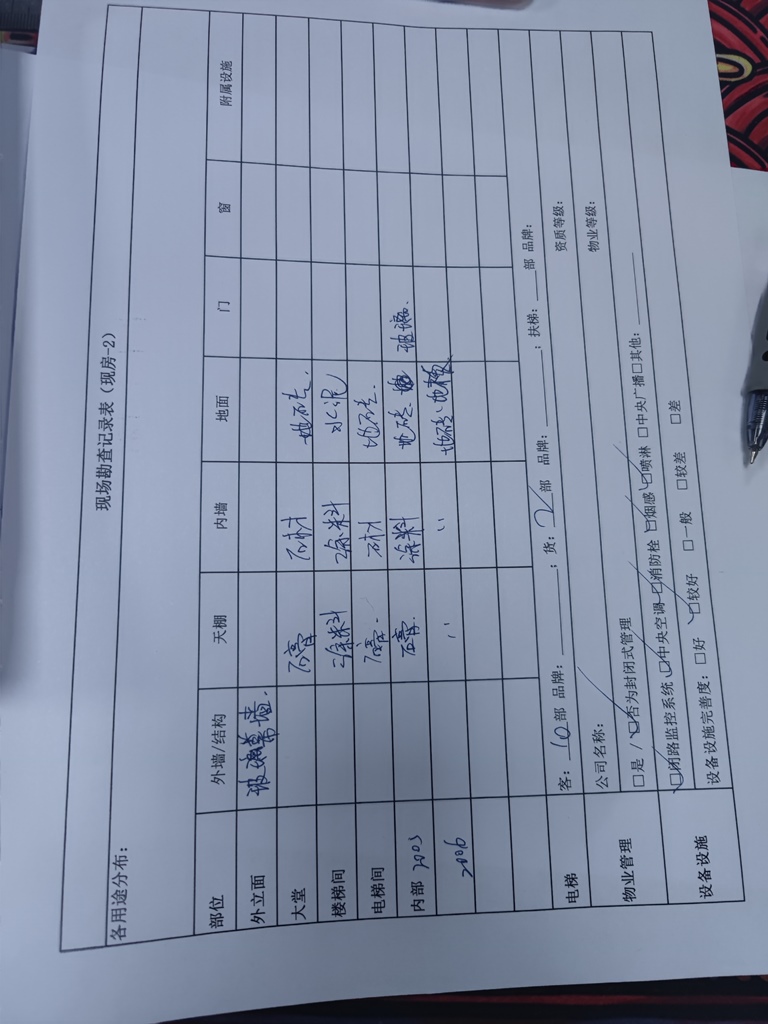 现场勘查记录表（现房-2）
各用途分布：
部位 外墙/结构 天棚 内墙 地面 门 窗 附属设施
外立面 玻璃幕墙.
大堂 石膏 石材 地砖.
楼梯间 涂料 涂料 水泥
电梯间 石膏. 石材 地砖.
内部 2003 石膏. 涂料 地砖 玻璃.
2006 〃 〃 地砖、地板
电梯 客：10部 品牌：______；货：2部 品牌：______；扶梯：___部 品牌：
物业管理 公司名称： 资质等级：
□是/☑否为封闭式管理 物业等级：
设备设施 ☑闭路监控系统 ☑中央空调 ☑消防栓 ☑烟感 ☑喷淋 □中央广播 □其他：______
设备设施完善度：□好 ☑较好 □一般 □较差 □差